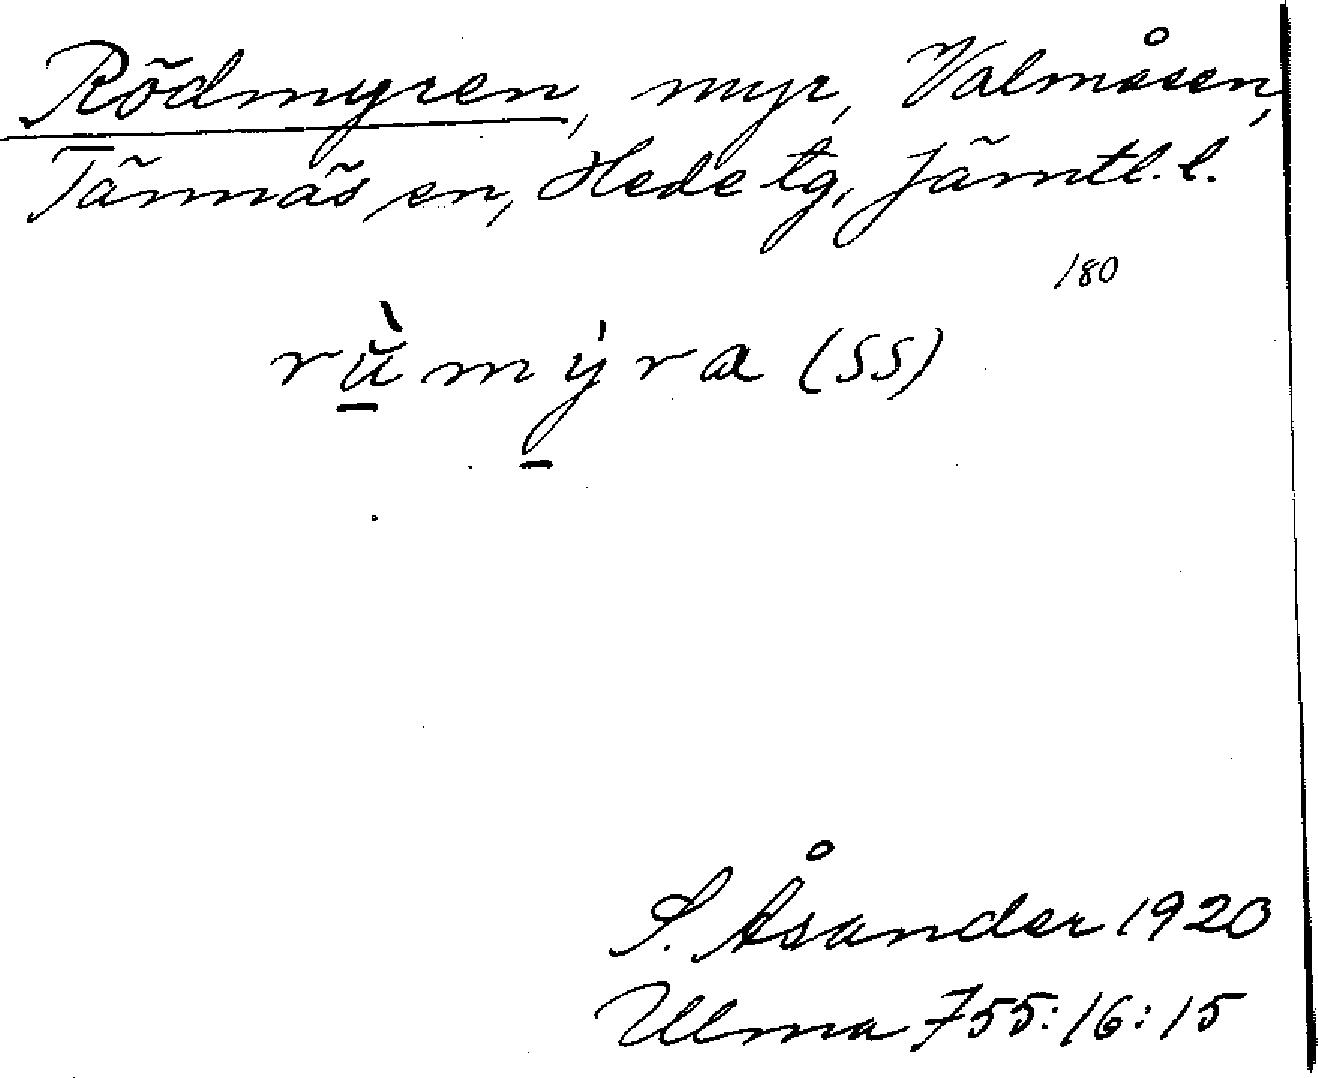 Rödmyren, myr, Valmåsen,
Tännäs sn, Hede tg, Jämtl. l.
180
rùmýra (SS)
S. Åsander 1920
Ulma 755:16:15